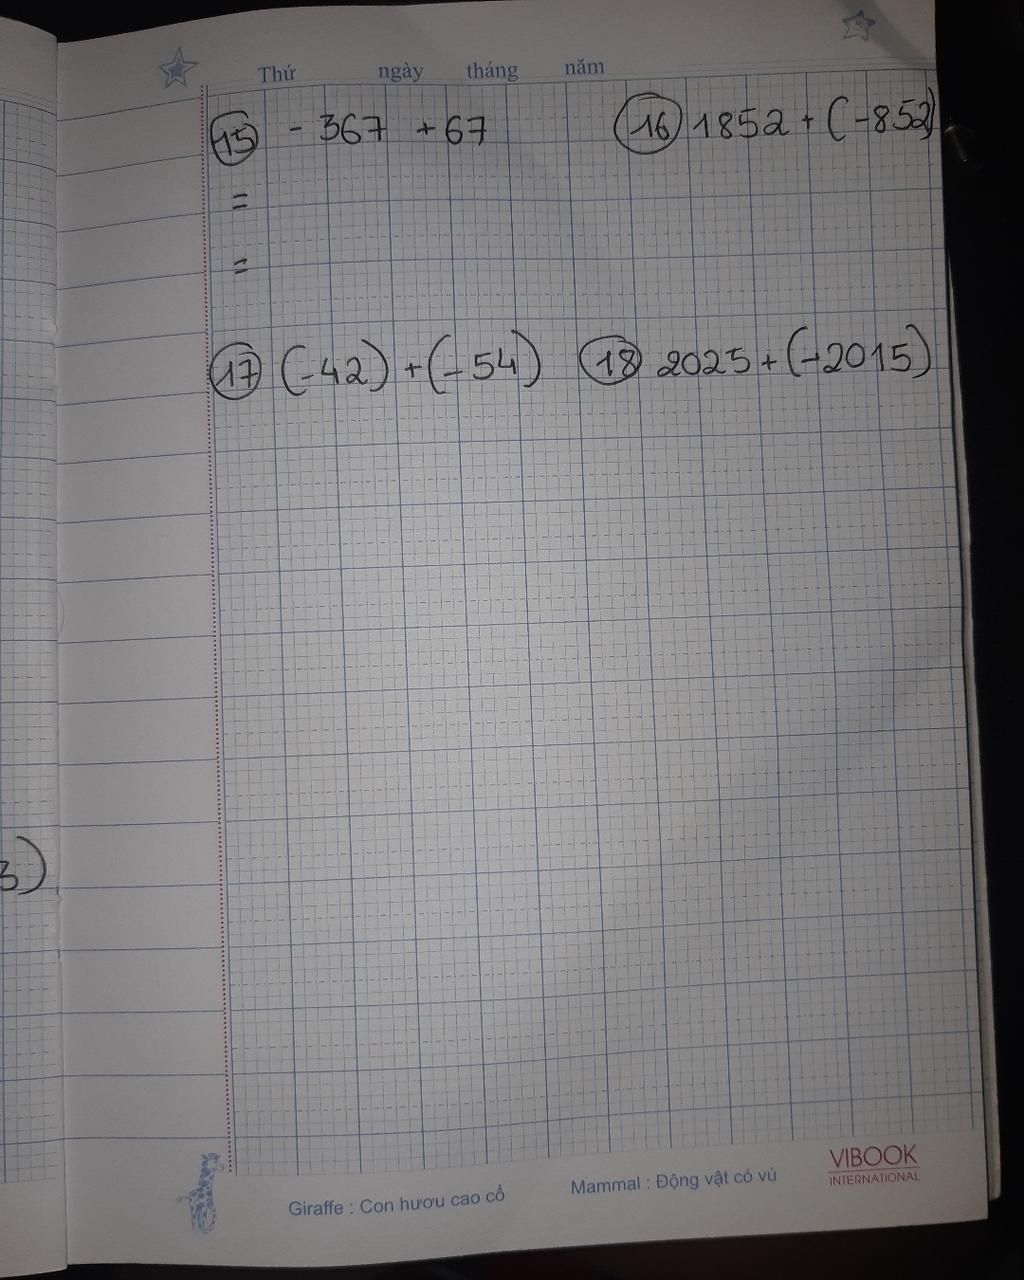 Thứ ngày tháng năm
15 - 367 + 67
16 1852 + (-852)
=
=
17 (-42) + (-54)
18 2025 + (-2015)
3)
Giraffe : Con hươu cao cổ
Mammal : Động vật có vú
VIBOOK
INTERNATIONAL